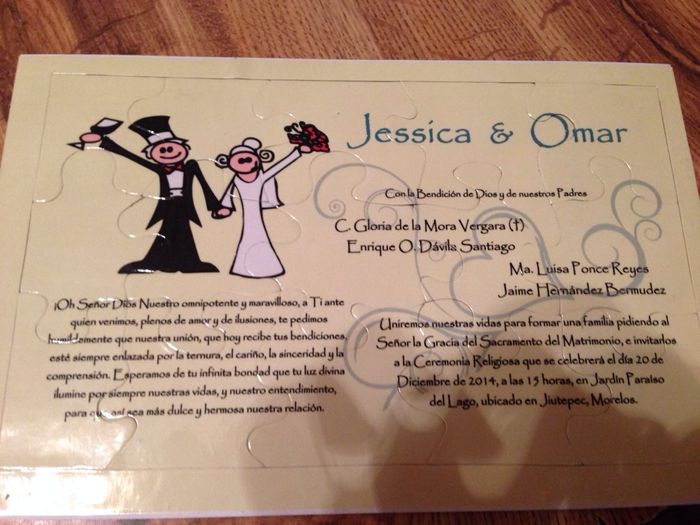 Jessica & Omar
Con la Bendición de Dios y de nuestros Padres
C. Gloria de la Mora Vergara (†)
Enrique O. Dávila Santiago
Ma. Luisa Ponce Reyes
Jaime Hernández Bermudez
¡Oh Señor Dios Nuestro omnipotente y maravilloso, a Ti ante
quien venimos, plenos de amor y de ilusiones, te pedimos
humildemente que nuestra unión, que hoy recibe tus bendiciones,
esté siempre enlazada por la ternura, el cariño, la sinceridad y la
comprensión. Esperamos de tu infinita bondad que tu luz divina
ilumine por siempre nuestras vidas, y nuestro entendimiento,
para que así sea más dulce y hermosa nuestra relación.
Uniremos nuestras vidas para formar una familia pidiendo al
Señor la Gracia del Sacramento del Matrimonio, e invitarlos
a la Ceremonia Religiosa que se celebrará el día 20 de
Diciembre de 2014, a las 15 horas, en Jardín Paraíso
del Lago, ubicado en Jiutepec, Morelos.